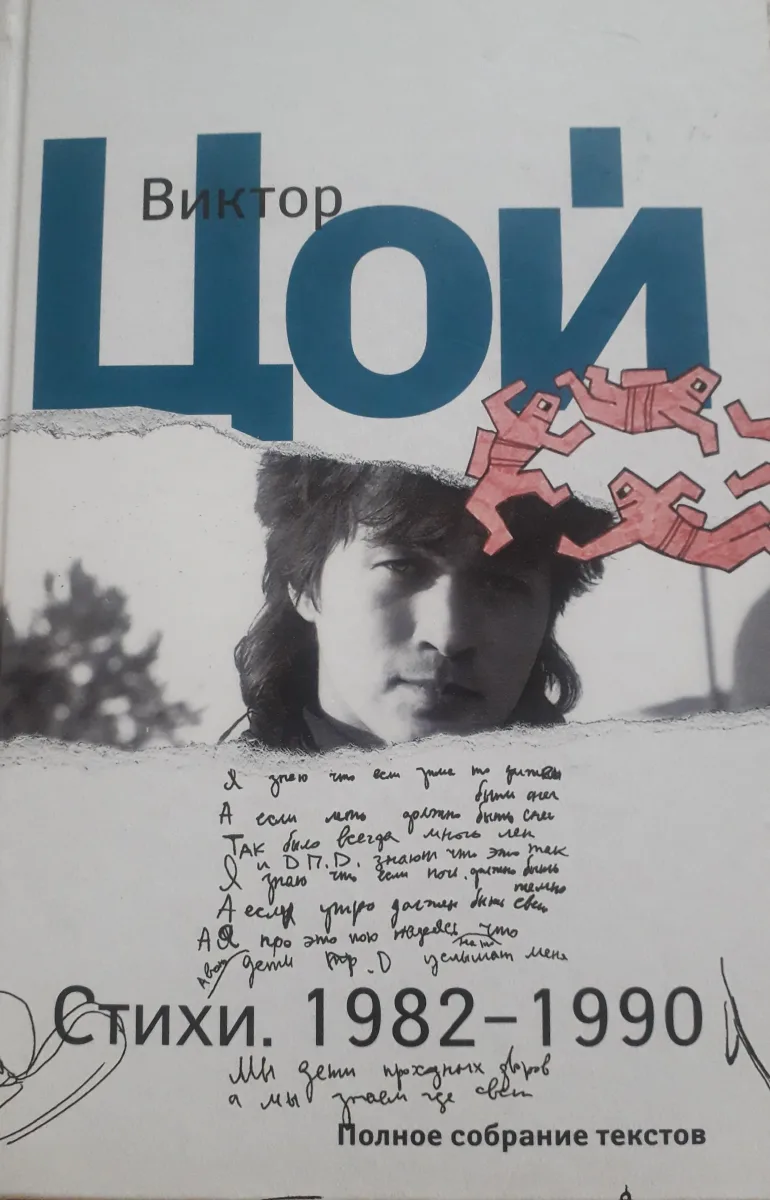 Виктор
Цой
Я знаю что если зима то должен
быть снег
А если лето должно быть
Так было всегда много лет
и D П.D. знают что это так
Я знаю что если ночь должно быть
темно
А если утро должен быть свет
А Я про это пою надеясь что
дети пр.D услышат меня
Стихи. 1982–1990
Мы дети проходных дворов
а мы знаем где свет
Полное собрание текстов